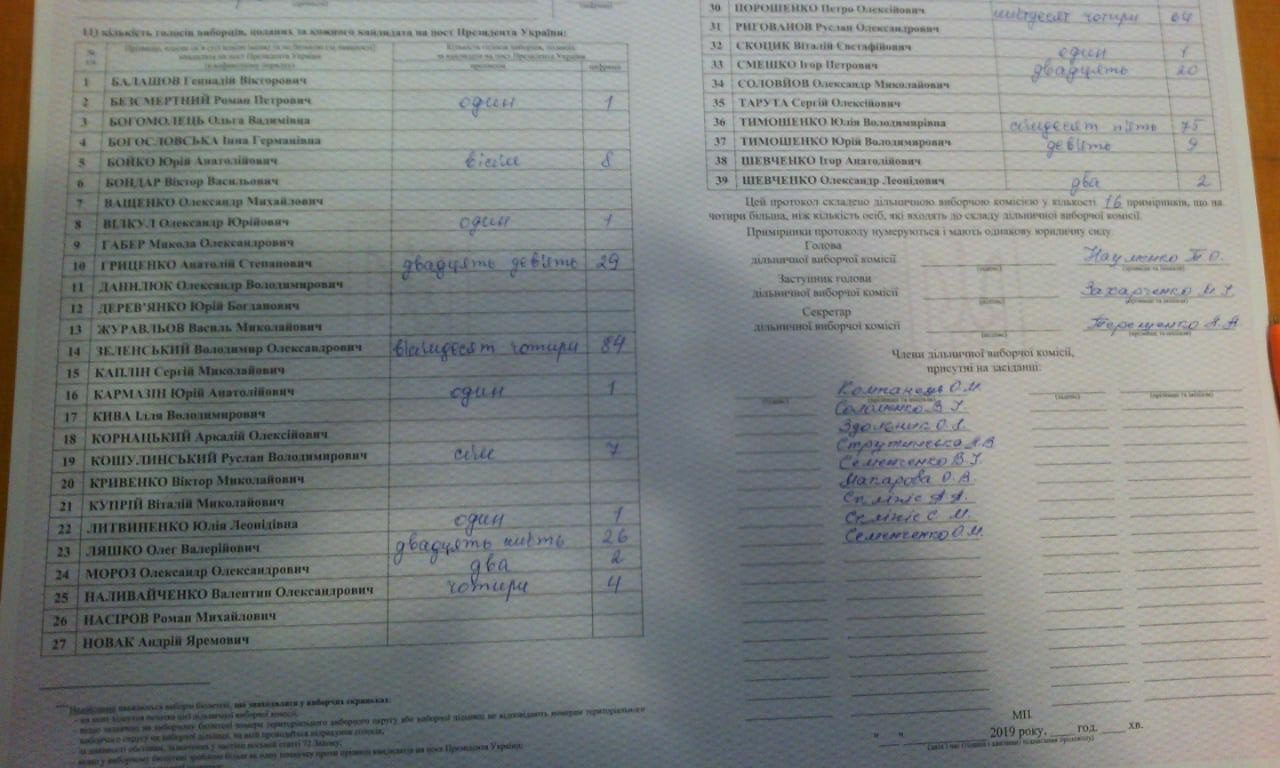 11) кількість голосів виборців, поданих за кожного кандидата на пост Президента України:
№ з/п
Прізвище, власне ім'я (усі власні імена) та по батькові (за наявності) кандидата на пост Президента України (в алфавітному порядку)
Кількість голосів виборців, поданих за кандидата на пост Президента України
прописом цифрами
1 БАЛАШОВ Геннадій Вікторович
2 БЕЗСМЕРТНИЙ Роман Петрович один 1
3 БОГОМОЛЕЦЬ Ольга Вадимівна
4 БОГОСЛОВСЬКА Інна Германівна
5 БОЙКО Юрій Анатолійович вісім 8
6 БОНДАР Віктор Васильович
7 ВАЩЕНКО Олександр Михайлович
8 ВІЛКУЛ Олександр Юрійович один 1
9 ГАБЕР Микола Олександрович
10 ГРИЦЕНКО Анатолій Степанович двадцять дев'ять 29
11 ДАНИЛЮК Олександр Володимирович
12 ДЕРЕВ'ЯНКО Юрій Богданович
13 ЖУРАВЛЬОВ Василь Миколайович
14 ЗЕЛЕНСЬКИЙ Володимир Олександрович вісімдесят чотири 84
15 КАПЛІН Сергій Миколайович
16 КАРМАЗІН Юрій Анатолійович один 1
17 КИВА Ілля Володимирович
18 КОРНАЦЬКИЙ Аркадій Олексійович
19 КОШУЛИНСЬКИЙ Руслан Володимирович сім 7
20 КРИВЕНКО Віктор Миколайович
21 КУПРІЙ Віталій Миколайович
22 ЛИТВИНЕНКО Юлія Леонідівна один 1
23 ЛЯШКО Олег Валерійович двадцять шість 26
24 МОРОЗ Олександр Олександрович два 2
25 НАЛИВАЙЧЕНКО Валентин Олександрович чотири 4
26 НАСІРОВ Роман Михайлович
27 НОВАК Андрій Яремович
що знаходилися у виборчих скриньках:
30 ПОРОШЕНКО Петро Олексійович шістдесят чотири 64
31 РИГОВАНОВ Руслан Олександрович
32 СКОЦИК Віталій Євстафійович один 1
33 СМЕШКО Ігор Петрович двадцять 20
34 СОЛОВЙОВ Олександр Миколайович
35 ТАРУТА Сергій Олексійович
36 ТИМОШЕНКО Юлія Володимирівна сімдесят п'ять 75
37 ТИМОШЕНКО Юрій Володимирович дев'ять 9
38 ШЕВЧЕНКО Ігор Анатолійович
39 ШЕВЧЕНКО Олександр Леонідович два 2
Цей протокол складено дільничною виборчою комісією у кількості 16 примірників, що на
чотири більша, ніж кількість осіб, які входять до складу дільничної виборчої комісії.
Примірники протоколу нумеруються і мають однакову юридичну силу
Голова
дільничної виборчої комісії Науменко Т О.
(підпис) (прізвище та ініціали)
Заступник голови
дільничної виборчої комісії Захарченко М.І.
(підпис) (прізвище та ініціали)
Секретар
дільничної виборчої комісії Терещенко А.А
(підпис) (прізвище та ініціали)
Члени дільничної виборчої комісії,
присутні на засіданні:
Компанець О.М.
(підпис) (прізвище та ініціали) (підпис) (прізвище та ініціали)
В. І.
Здольник О.І.
Струтинська Н.В
Семенченко В.І.
Макарова О.В.
Склініс А А.
Склініс С М.
Семенченко О.М.
МП
" " 2019 року, год. хв.
(дата і час (година і хвилини) підписання протоколу)